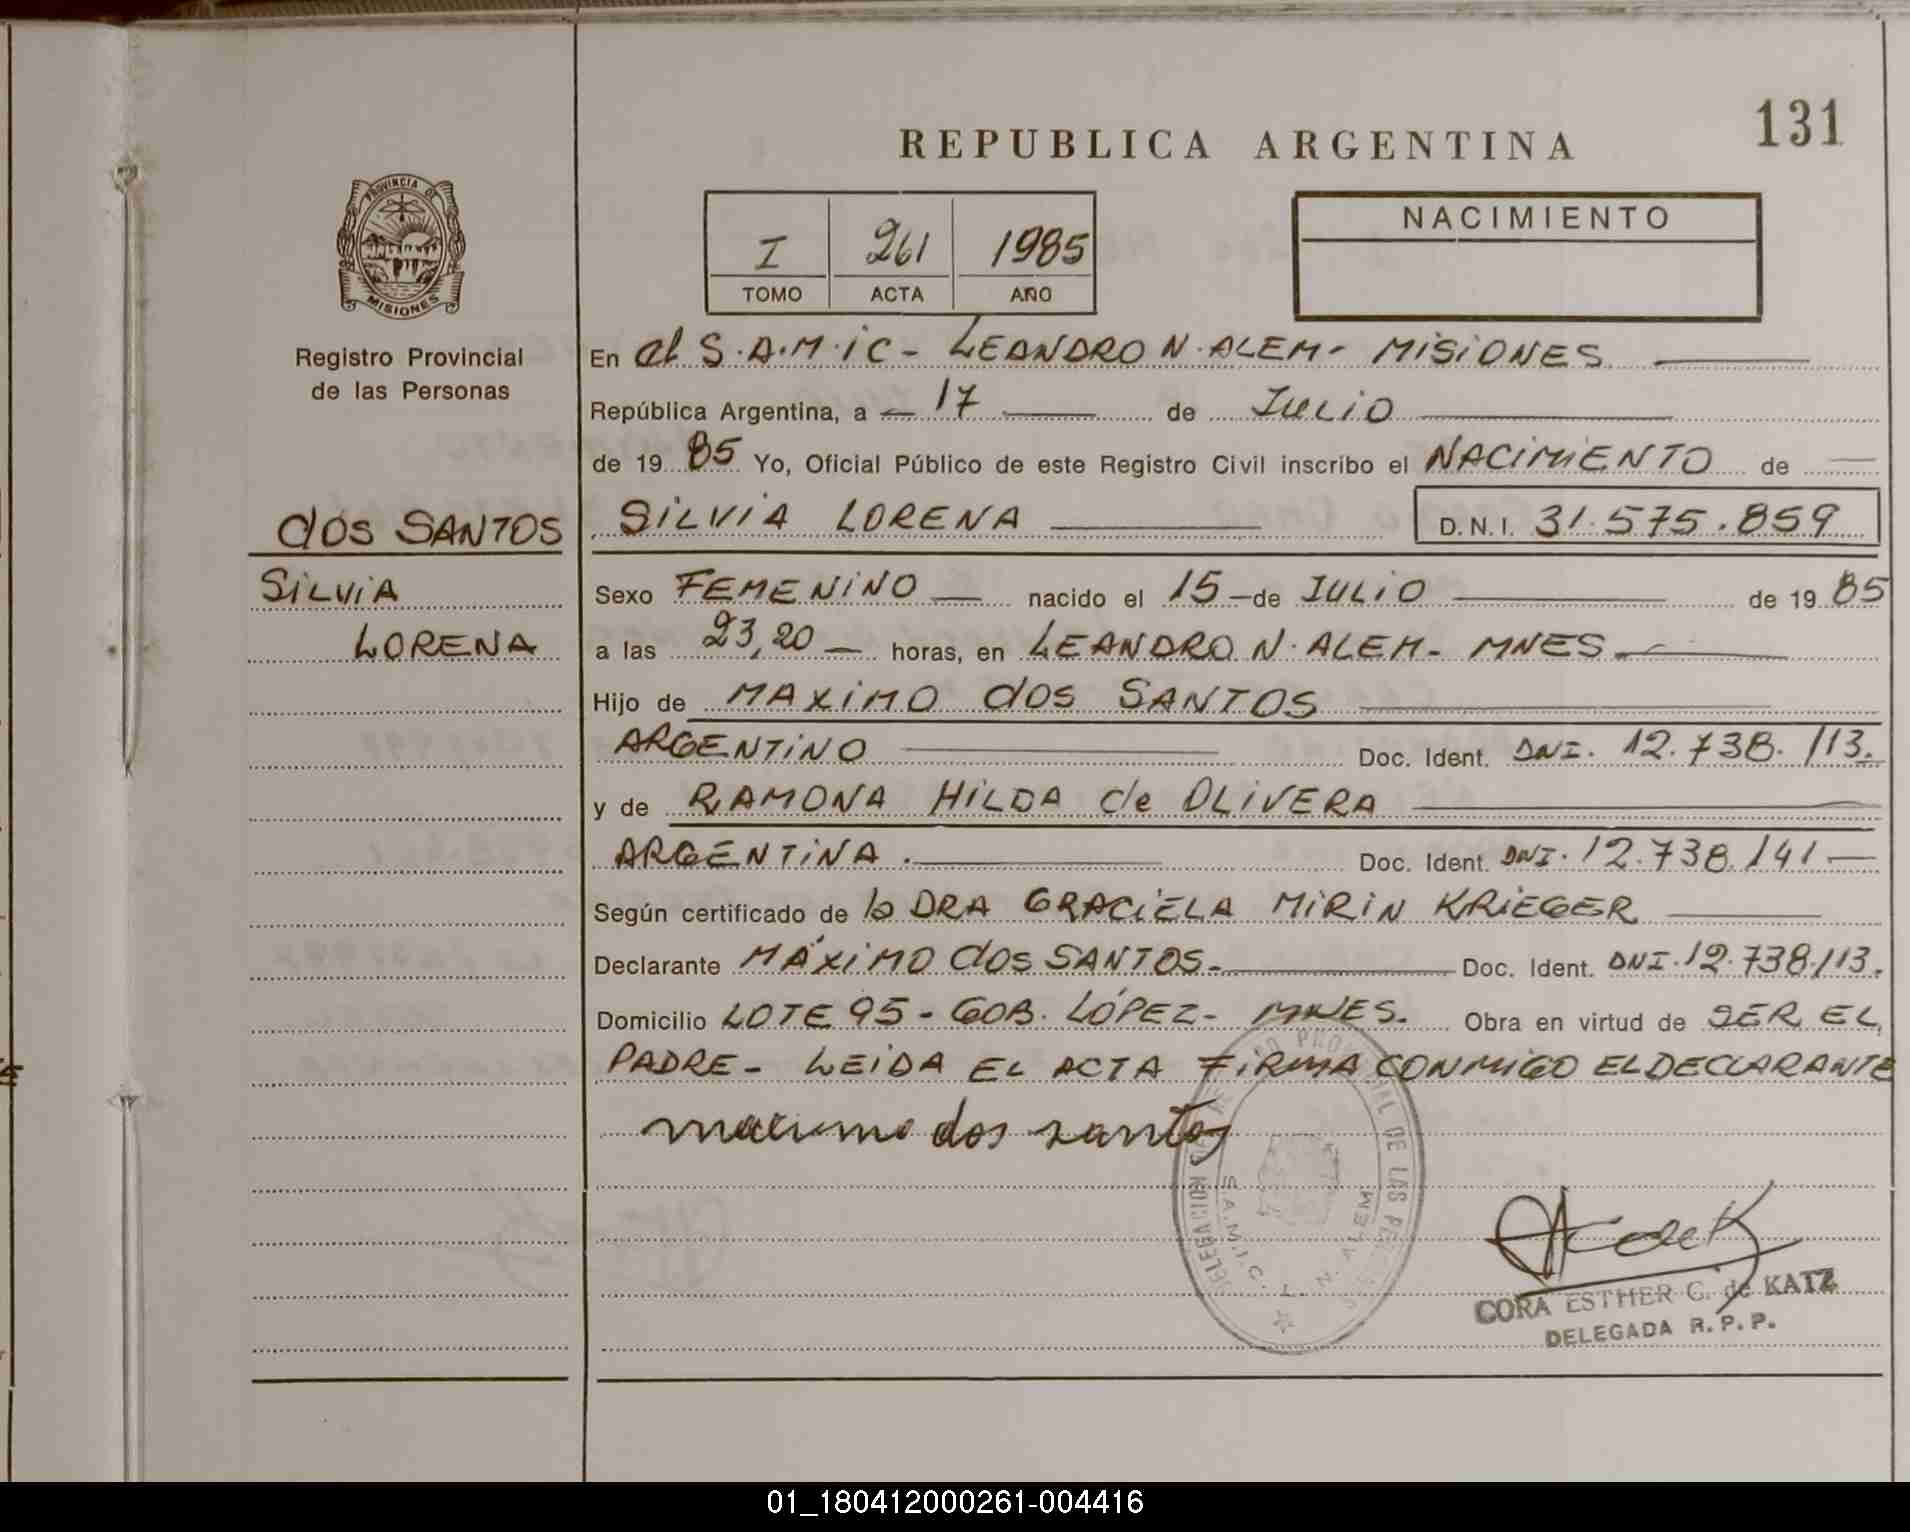 131
REPUBLICA ARGENTINA
PROVINCIA DE
MISIONES
Registro Provincial
de las Personas
I 261 1985
TOMO ACTA AÑO
NACIMIENTO
En el S.A.M.iC - LEANDRO N. ALEM - MISIONES
República Argentina, a 17 de JULIO
de 19 85 Yo, Oficial Público de este Registro Civil inscribo el NACIMIENTO de
dos SANTOS SILVIA LORENA D.N.I. 31.575.859
SILVIA
LORENA
Sexo FEMENINO nacido el 15 de JULIO de 19 85
a las 23,20 horas, en LEANDRO N. ALEM - MNES
Hijo de MAXIMO dos SANTOS
ARGENTINO Doc. Ident. DNI. 12.738.113.
y de RAMONA HILDA de OLIVERA
ARGENTINA. Doc. Ident. DNI. 12.738.141
Según certificado de la DRA GRACIELA MIRIN KRIEGER
Declarante MÁXIMO dos SANTOS. Doc. Ident. DNI. 12.738.113.
Domicilio LOTE 95 - GOB. LÓPEZ - MNES. Obra en virtud de SER EL
PADRE - LEIDA EL ACTA FIRMA CONMIGO EL DECLARANTE
maximo dos santos
DELEGACION S.A.M.I.C. L. N. ALEM
CORA ESTHER G. de KATZ
DELEGADA R.P.P.
01_180412000261-004416